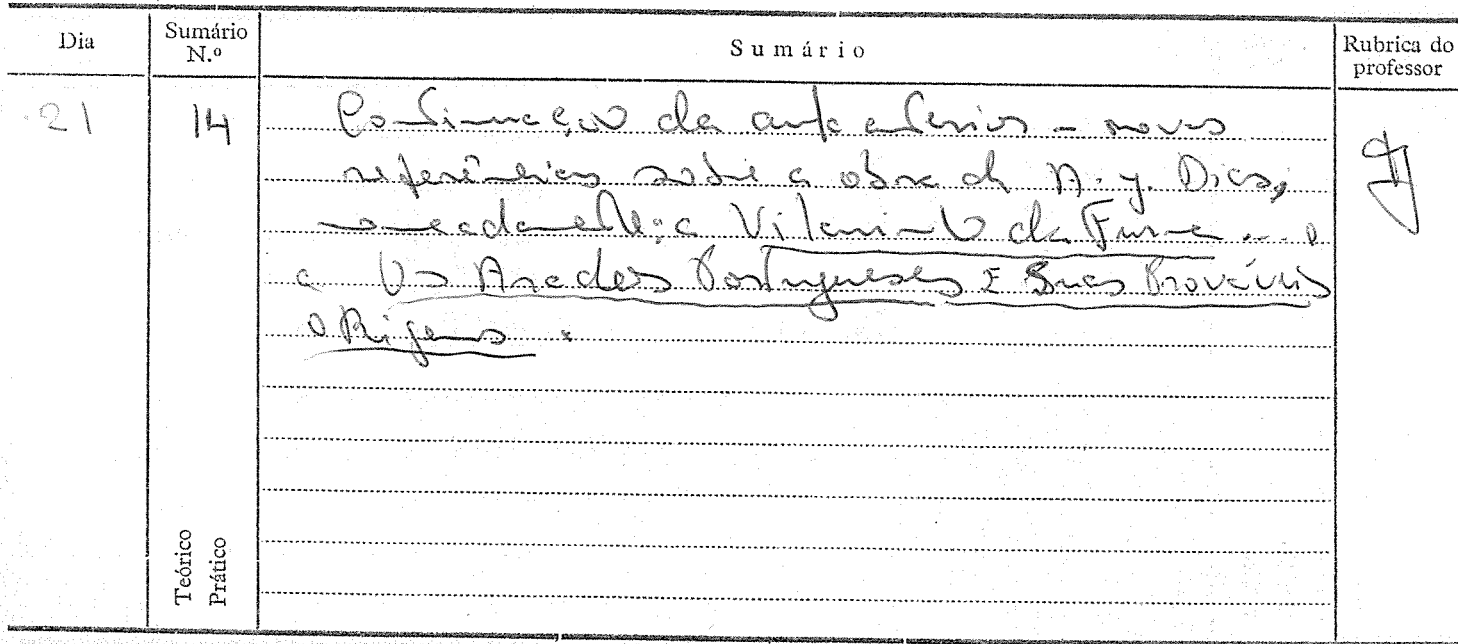 Dia
Sumário N.º
Sumário
Rubrica do professor
21
14
Continuação da aula anterior - novas
referências sobre a obra de A. J. Dias,
nomeadamente: a Vilarinho da Furna ... e
a Os Arados Portugueses E Suas Prováveis
ORigens.
Teórico
Prático